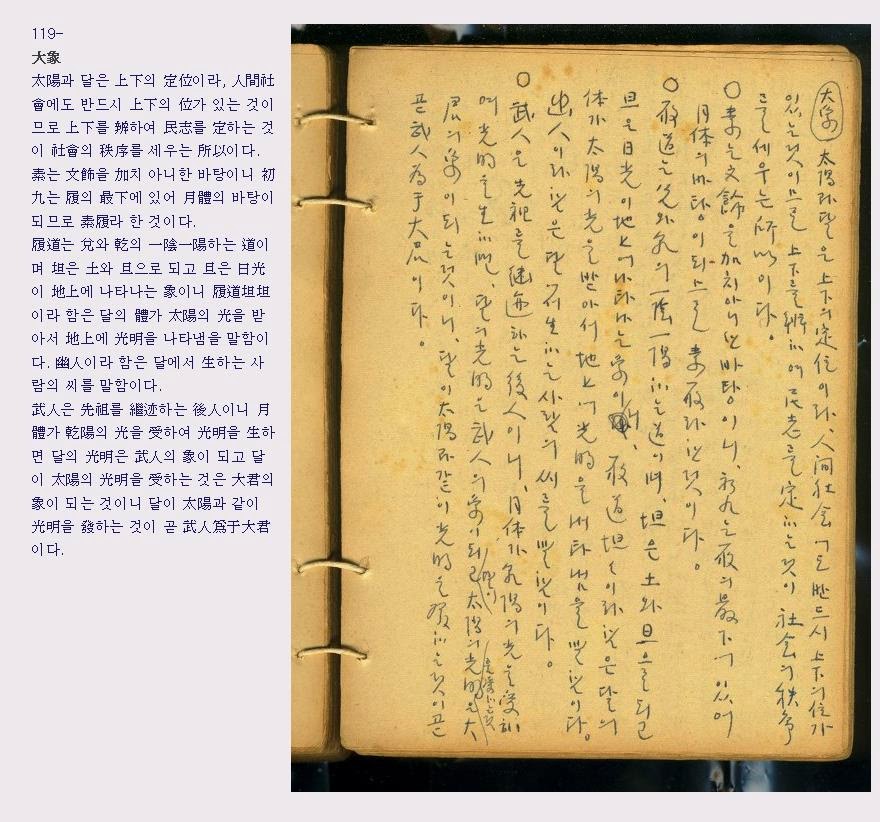 119-
大象
太陽과 달은 上下의 定位이라, 人間社
會에도 반드시 上下의 位가 있는 것이
므로 上下를 辨하여 民志를 定하는 것
이 社會의 秩序를 세우는 所以이다.
素는 文飾을 加치 아니한 바탕이니 初
九는 履의 最下에 있어 月體의 바탕이
되므로 素履라 한 것이다.
履道는 兌와 乾의 一陰一陽하는 道이
며 坦은 土와 旦으로 되고 旦은 日光
이 地上에 나타나는 象이니 履道坦坦
이라 함은 달의 體가 太陽의 光을 받
아서 地上에 光明을 나타냄을 말함이
다. 幽人이라 함은 달에서 生하는 사
람의 씨를 말함이다.
武人은 先祖를 繼迹하는 後人이니 月
體가 乾陽의 光을 受하여 光明을 生하
면 달의 光明은 武人의 象이 되고 달
이 太陽의 光明을 受하는 것은 大君의
象이 되는 것이니 달이 太陽과 같이
光明을 發하는 것이 곧 武人爲于大君
이다.
大象 太陽과 달은 上下의 定位이라, 人間社会에도 반드시 上下의 位가
있는것이므로 上下를 辨하여 民志를 定하는것이 社会의 秩序
를 세우는 所以이다.
○ 素는 文飾을 加치아니한 바탕이니, 初九는 履의 最下에 있어
月体의 바탕이 되므로 素履라 한것이다.
○ 履道는 兌와 乾의 一陰一陽하는 道이며, 坦은 土와 旦으로 되고
旦은 日光이 地上에 나타나는 象이니, 履道坦々이라 함은 달의
体가 太陽의 光을 받아서 地上에 光明을 나타냄을 말함이다.
幽人이라 함은 달에서 生하는 사람의 씨를 말함이다.
○ 武人은 先祖를 繼迹하는 後人이니, 月体가 乾陽의 光을 受하
여 光明을 生하면, 달의 光明은 武人의 象이 되고 달이 太陽의 光明을 受하는것은 大
君의 象이 되는것이니, 달이 太陽과같이 光明을 發하는것이 곧
곧 武人爲于大君이다.